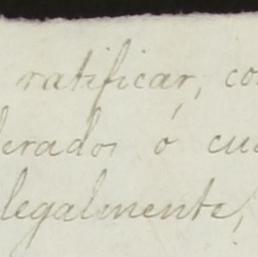 ratificar, co
derados ó cu
legalmente,